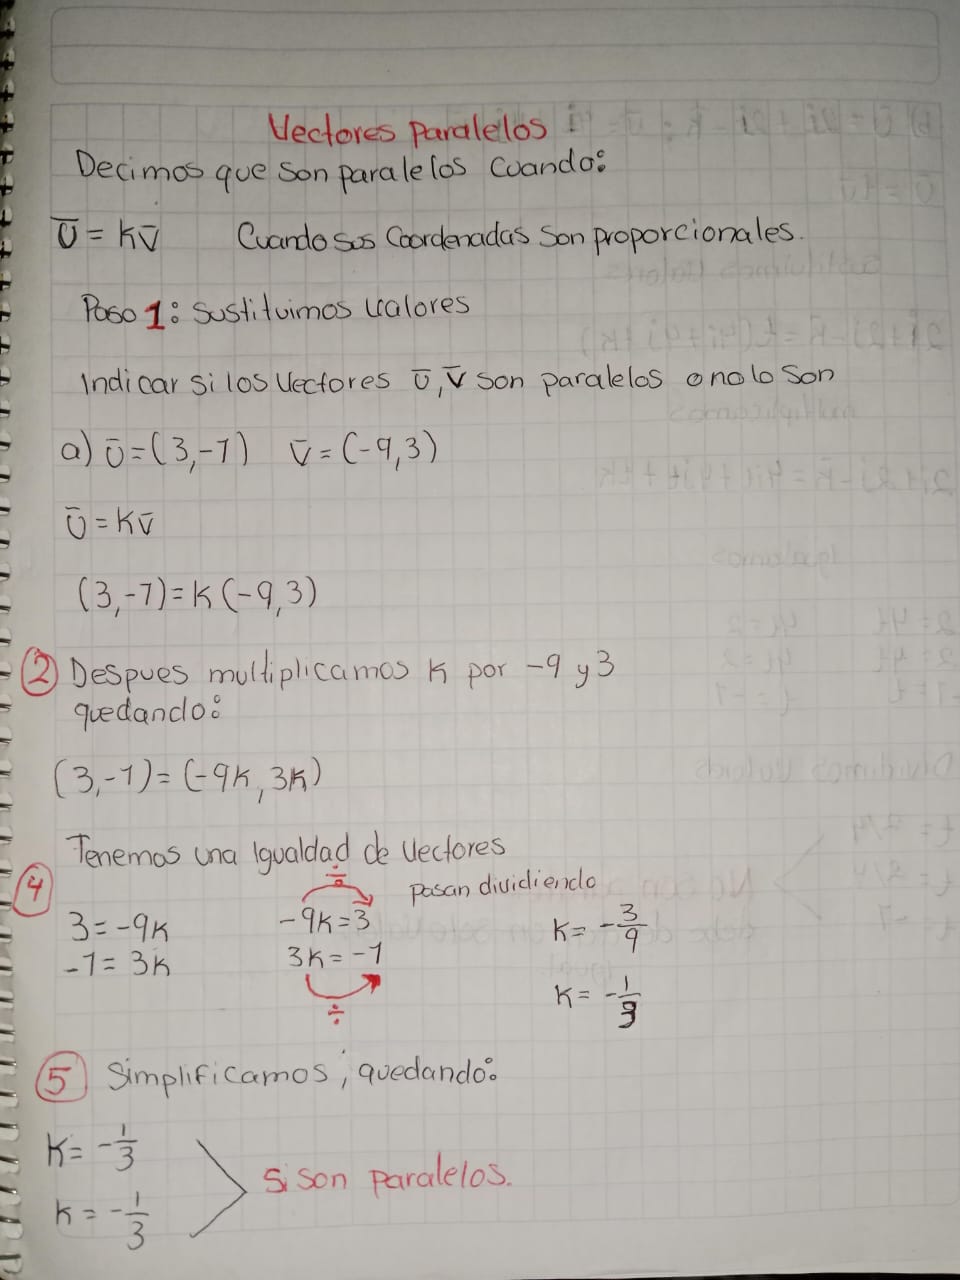 Vectores paralelos
Decimos que son paralelos cuando:
Ū = Kv̄ Cuando sus coordenadas son proporcionales.
Paso 1: Sustituimos valores
Indicar si los vectores ū, v̄ son paralelos o no lo son
a) ū = (3,-1) v̄ = (-9,3)
ū = Kv̄
(3,-1) = K (-9,3)
2 Despues multiplicamos K por -9 y 3
quedando:
(3,-1) = (-9K, 3K)
Tenemos una igualdad de vectores
4 ÷ pasan dividiendo
3 = -9K -9K = 3 K = -3/9
-1 = 3K 3K = -1 K = -1/3
÷
5 Simplificamos, quedando:
K = -1/3
K = -1/3
Si son paralelos.